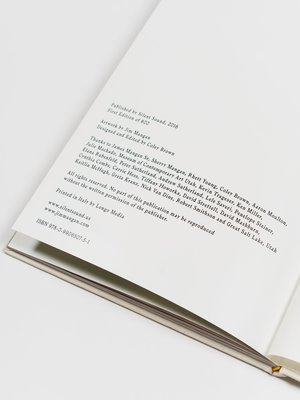 Published by Silent Sound, 2016
First Edition of 600
Artwork by Jim Mangan
Designed and Edited by Coley Brown
Thanks to James Mangan Sr, Sherry Mangan, Rhett Young, Coley Brown, Aaron Moulton,
Julie Machado, Museum of Contemporary Art Utah, Kevin Traynor, Ken Miller,
Elena Rubenfeld, Peter Sutherland, Andrew Sutherland, Lele Saveri, Penelope Steiner,
Cynthia Combs, Carrie Hess, Tiffany Howorko, David Strettell, David Mashburn,
Kaitlin McHugh, Greta Kranz, Nick Van Dine, Robert Smithson and Great Salt Lake, Utah
All rights reserved. No part of this publication may be reproduced
without the written permission of the publisher.
Printed in Italy by Longo Media
www.silentsound.us
www.jimmangan.com